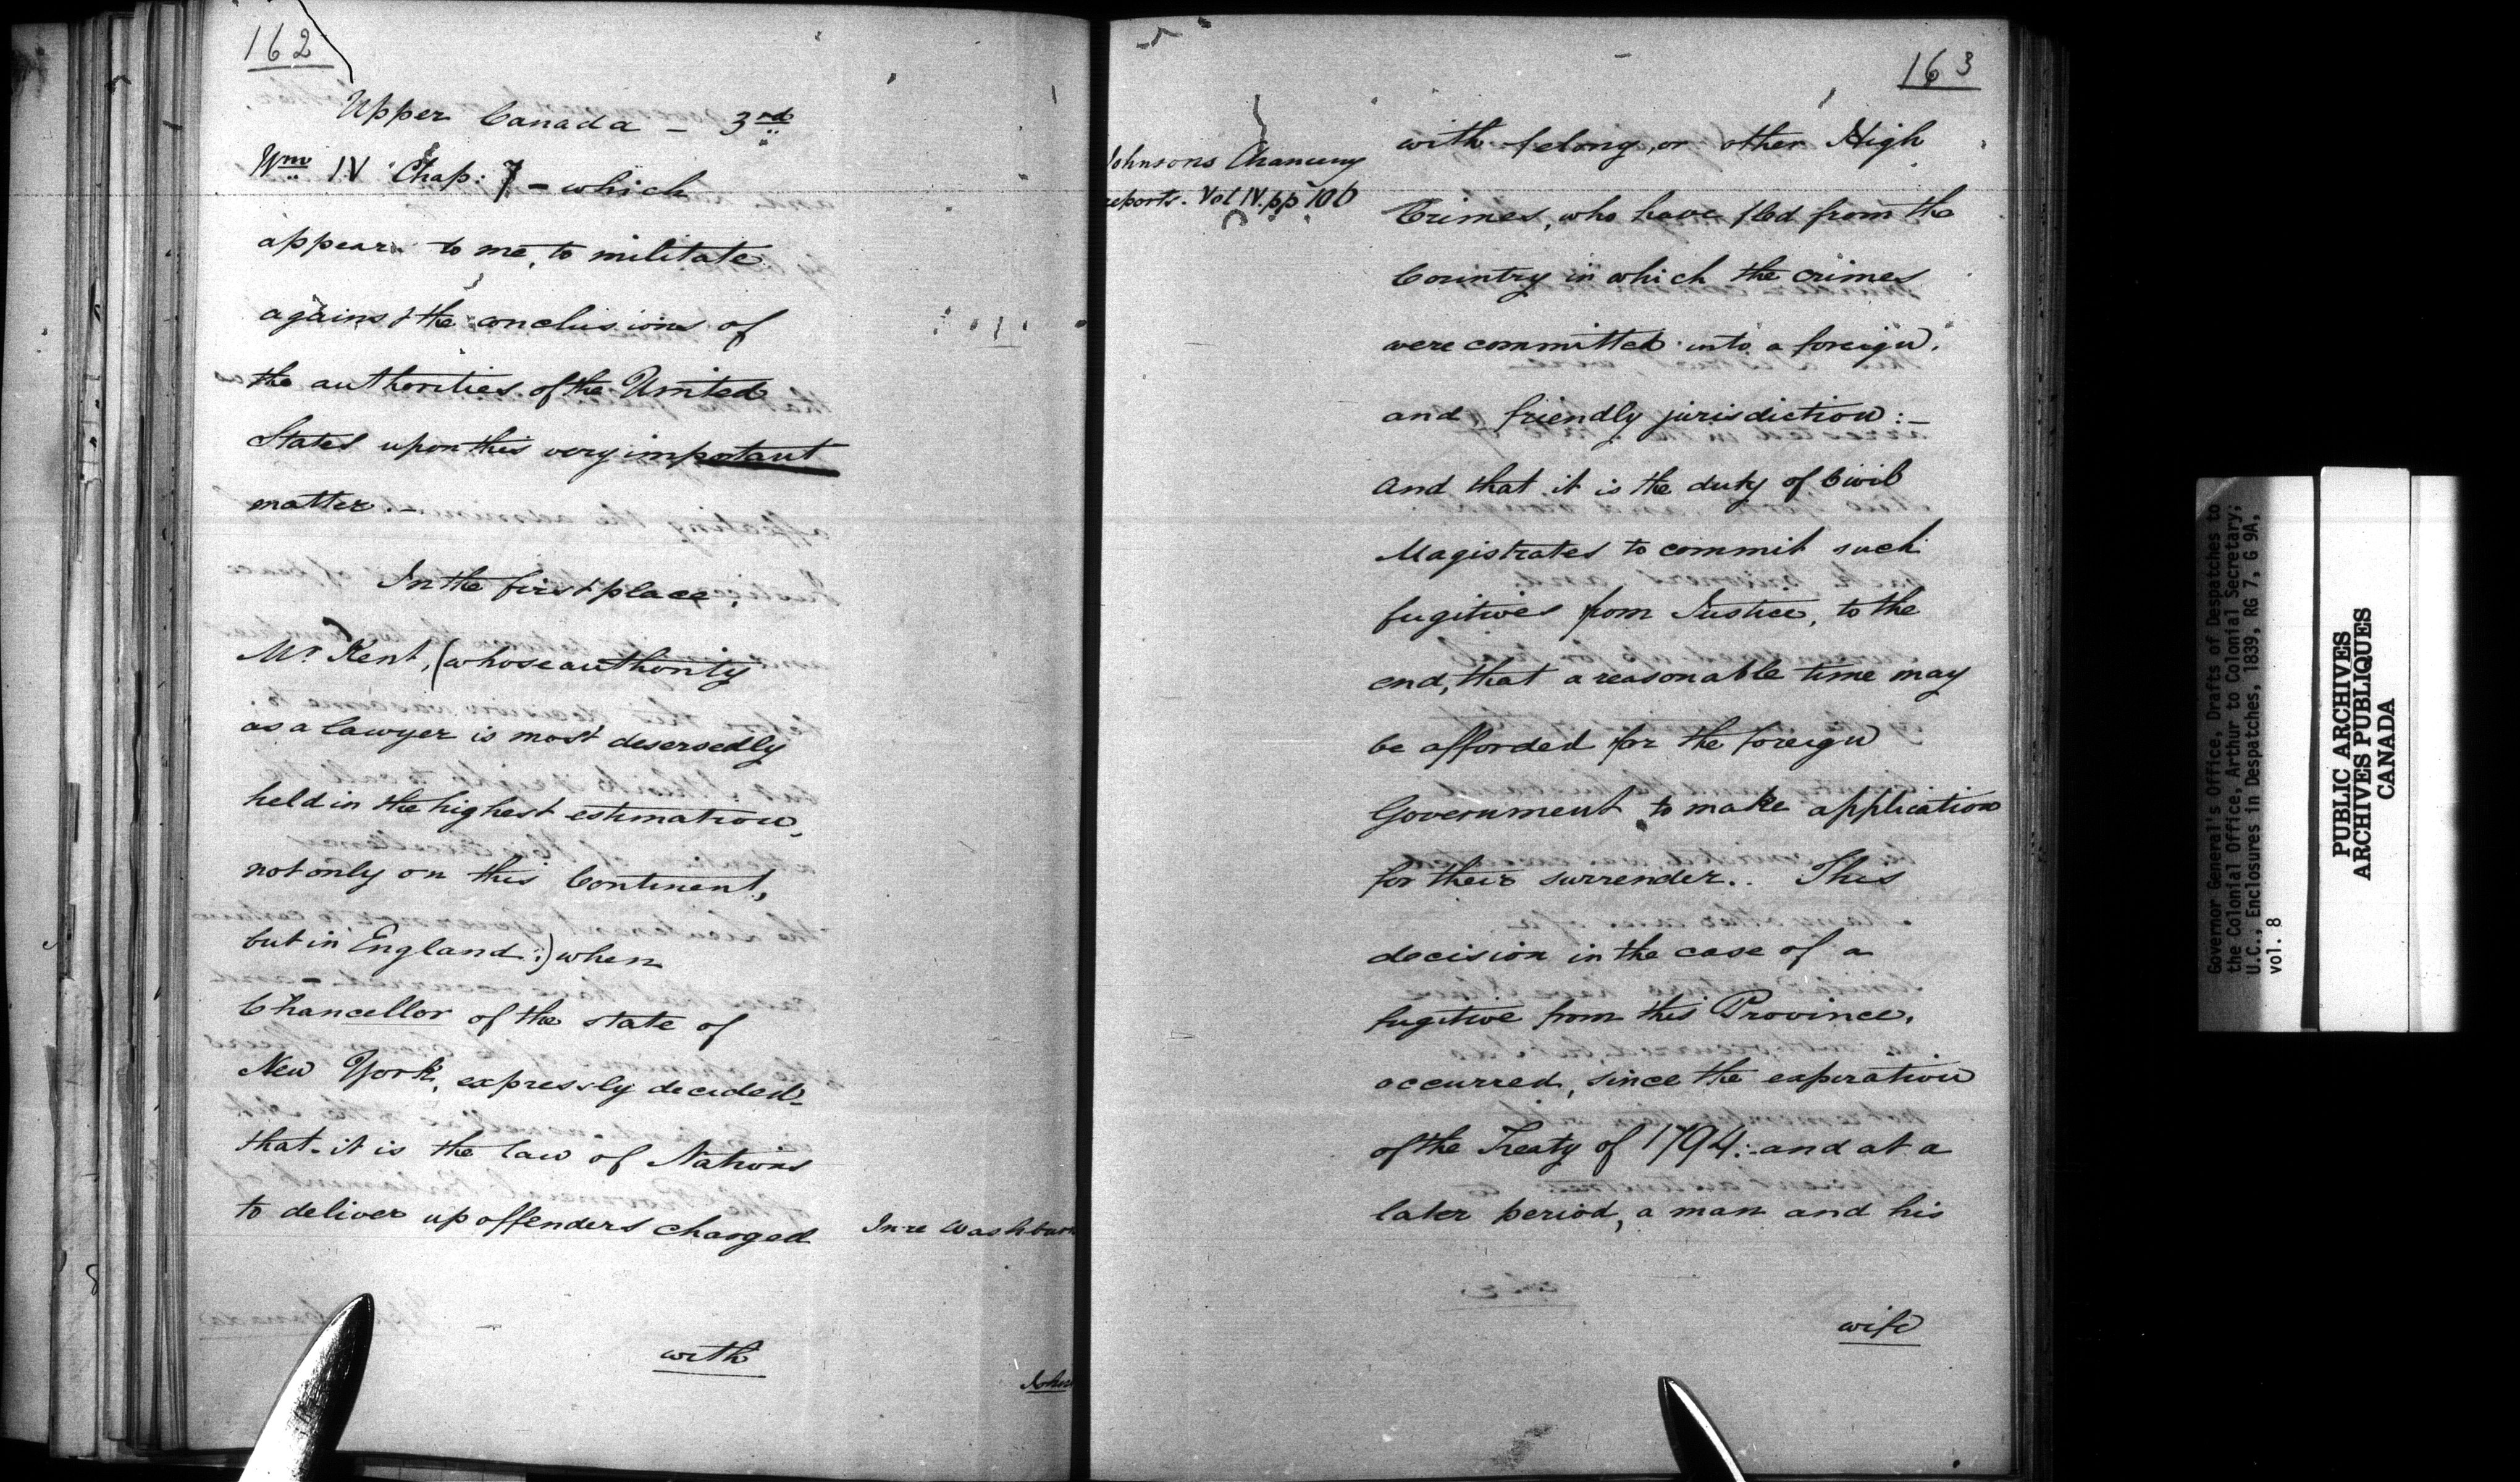 162
Upper Canada – 3rd
Wm IV Chap: 7 – which
appear to me, to militate
against the conclusions of
the authorities of the United
States upon this very important
matter. –
In the first place,
Mr Kent, (whose authority
as a lawyer is most deservedly
held in the highest estimation,
not only on this Continent,
but in England:) when
Chancellor of the state of
New York, expressly decided –
that it is the law of Nations
to deliver up offenders charged
In re Washburn
with
John
163
Johnsons Chancery
reports. Vol IV. pp 106
with felony, or other High
Crimes, who have fled from the
Country in which the crimes
were committed into a foreign
and friendly jurisdiction: –
And that it is the duty of Civil
Magistrates to commit such
fugitives from Justice, to the
end, that a reasonable time may
be afforded for the foreign
Government to make application
for their surrender.. This
decision in the case of a
fugitive from this Province,
occurred, since the expiration
of the Treaty of 1794: and at a
later period, a man and his
wife
Governor General's Office, Drafts of Despatches to
the Colonial Office, Arthur to Colonial Secretary;
U.C., Enclosures in Despatches, 1839, RG 7, G 9A,
vol. 8
PUBLIC ARCHIVES
ARCHIVES PUBLIQUES
CANADA